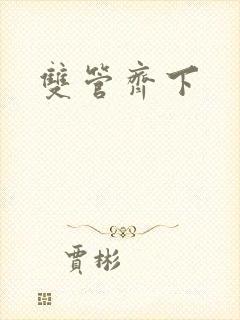 雙管齊下
賈彬